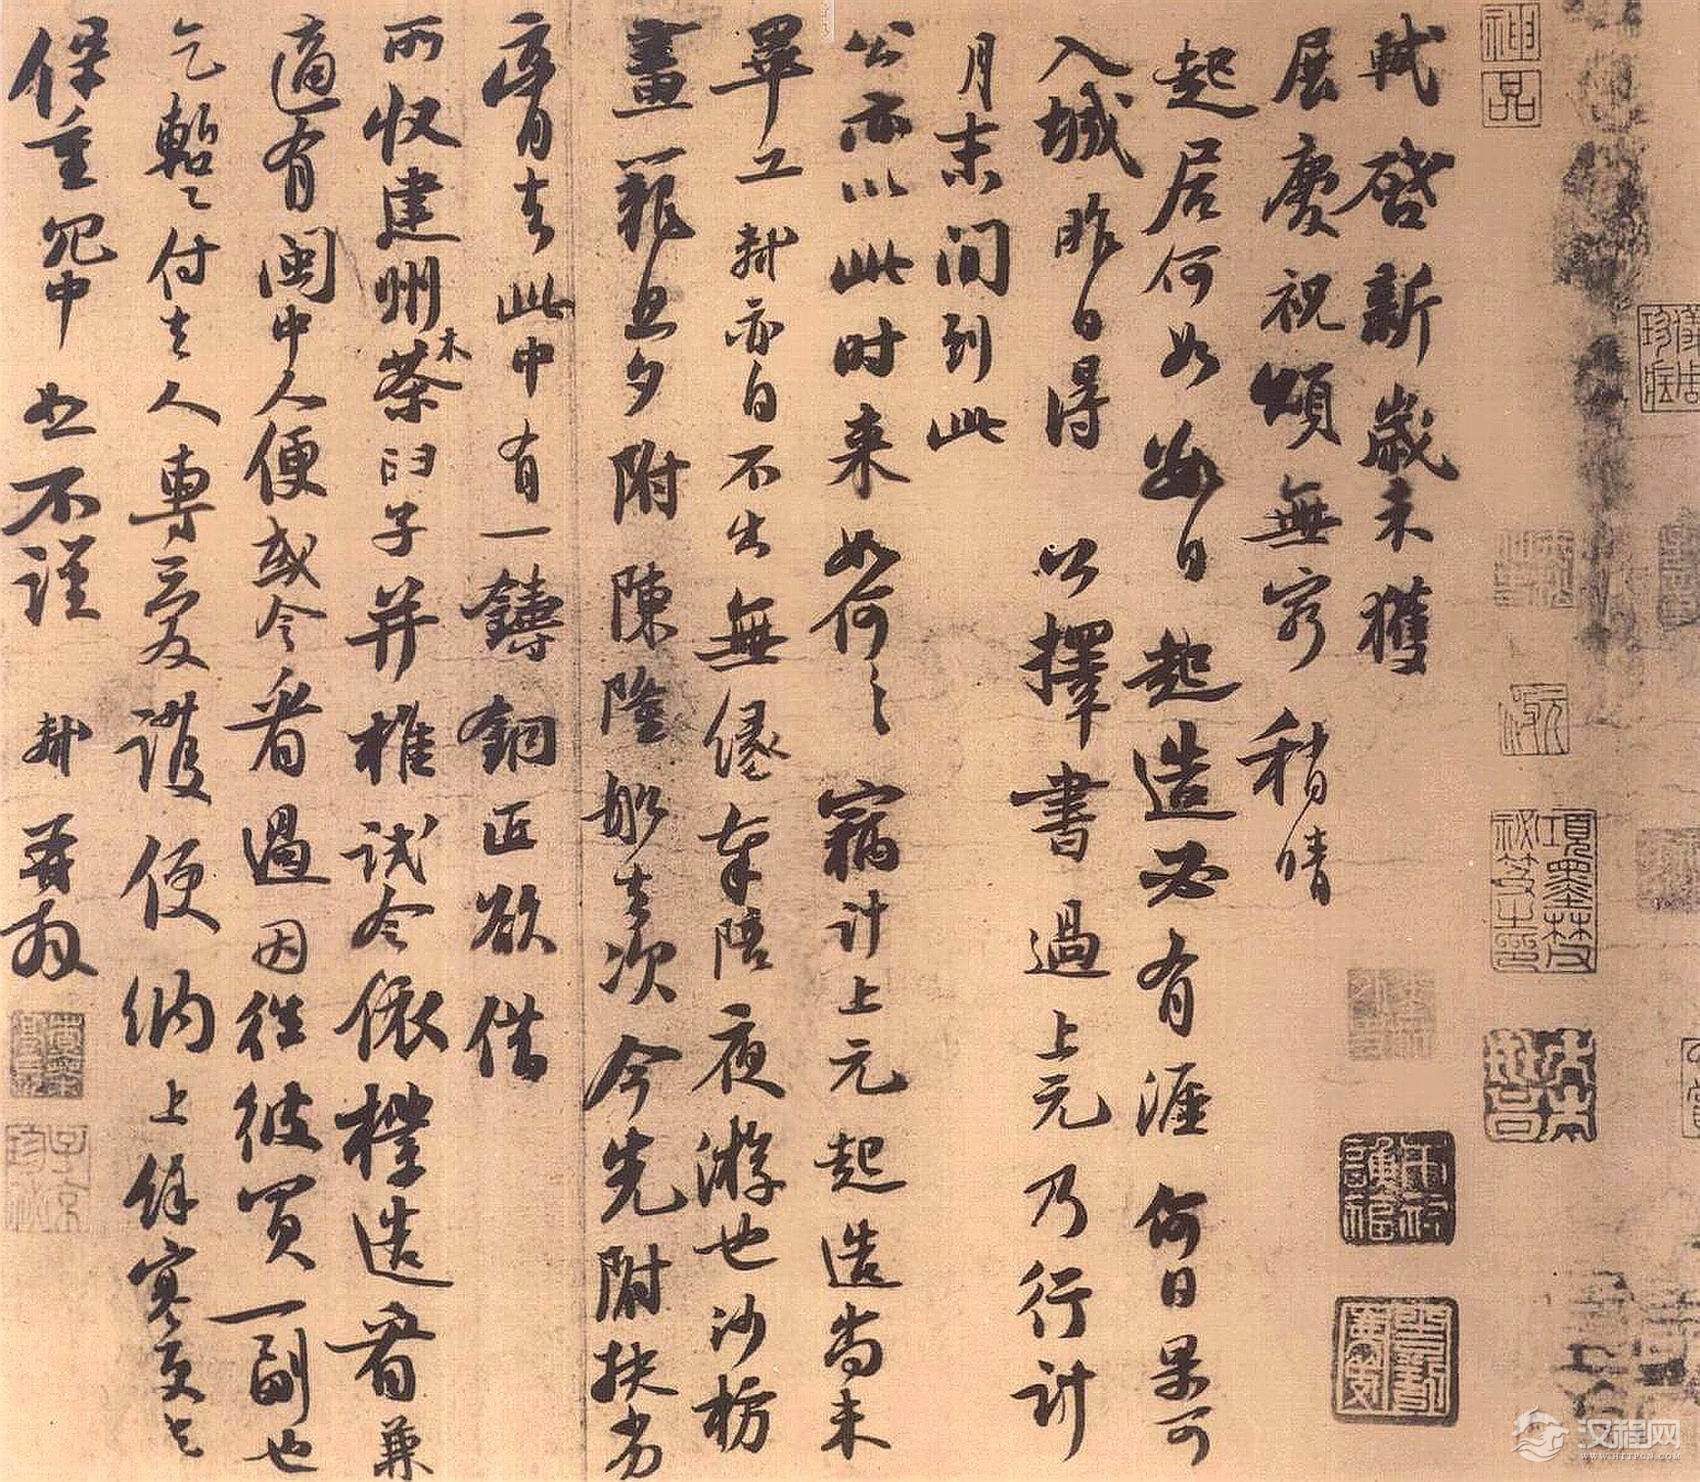 軾啓新歲未獲
展慶祝頌無窮稍晴
起居何如數日起造必有涯何日果可
入城昨日得公擇書過上元乃行計
月末間到此
公亦以此時来如何〻竊計上元起造尚未
畢工軾亦自不出無緣奉陪夜游也沙枋
畫籠旦夕附陳隆船去次今先附扶劣
膏去此中有一鑄銅匠欲借
所收建州木茶臼子并椎試令依樣造看兼
適有閩中人便或令看過因往彼買一副也
乞暫〻付去人專愛護便納上餘寒更乞
保重冗中恕不謹軾再拜
神品
項墨林父秘笈之印
汉程网
WWW.HTTPCN.COM